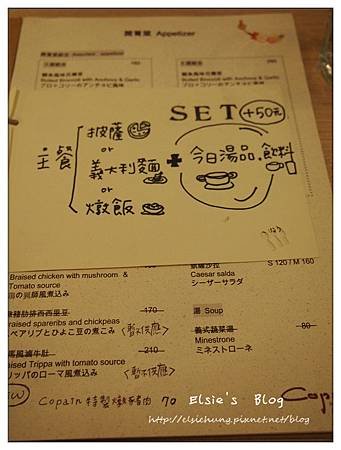 開胃菜 Appetizer
180
280
鯷魚風味花椰菜
鯷魚風味花椰菜
Boiled Broccoli with Anchovy & Garlic
Boiled Broccoli with Anchovy & Garlic
ブロッコリーのアンチョビ風味
ブロッコリーのアンチョビ風味
SET +50元
主餐
披薩
or
義大利麵
or
燉飯
+
今日湯品.飲料
Braised chicken with mushroom &
Tomato source
の猟師風煮込み
170
braised spareribs and chickpeas
ペアリブとひよこ豆の煮こみ
<暫不供應>
210
aised Trippa with tomato source
リッパのローマ風煮込み
<暫不供應>
Copain 特製燉豬肉 70
凱薩沙拉
S 120 / M 160
Caesar salda
シーザーサラダ
湯 Soup
義式蔬菜湯 80
Minestrone
ミネストローネ
Cop
Elsie's Blog
http://elsiehung.pixnet.net/blog